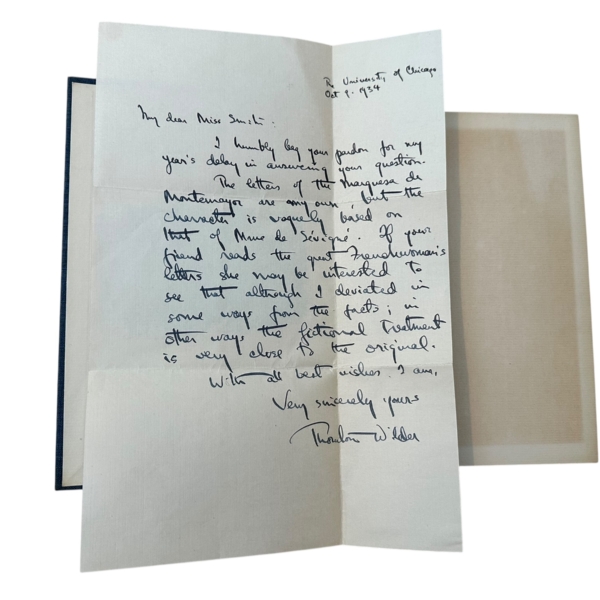 The University of Chicago
Oct 9. 1934
My dear Miss Smith:
I humbly beg your pardon for my
year's delay in answering your question.
The letters of the Marquesa de
Montemayor are my own, but the
character is vaguely based on
that of Mme de Sévigné. If your
friend reads the great Frenchwoman's
letters she may be interested to
see that although I deviated in
some ways from the facts; in
other ways the fictional treatment
is very close to the original.
With all best wishes, I am,
Very sincerely yours
Thornton Wilder